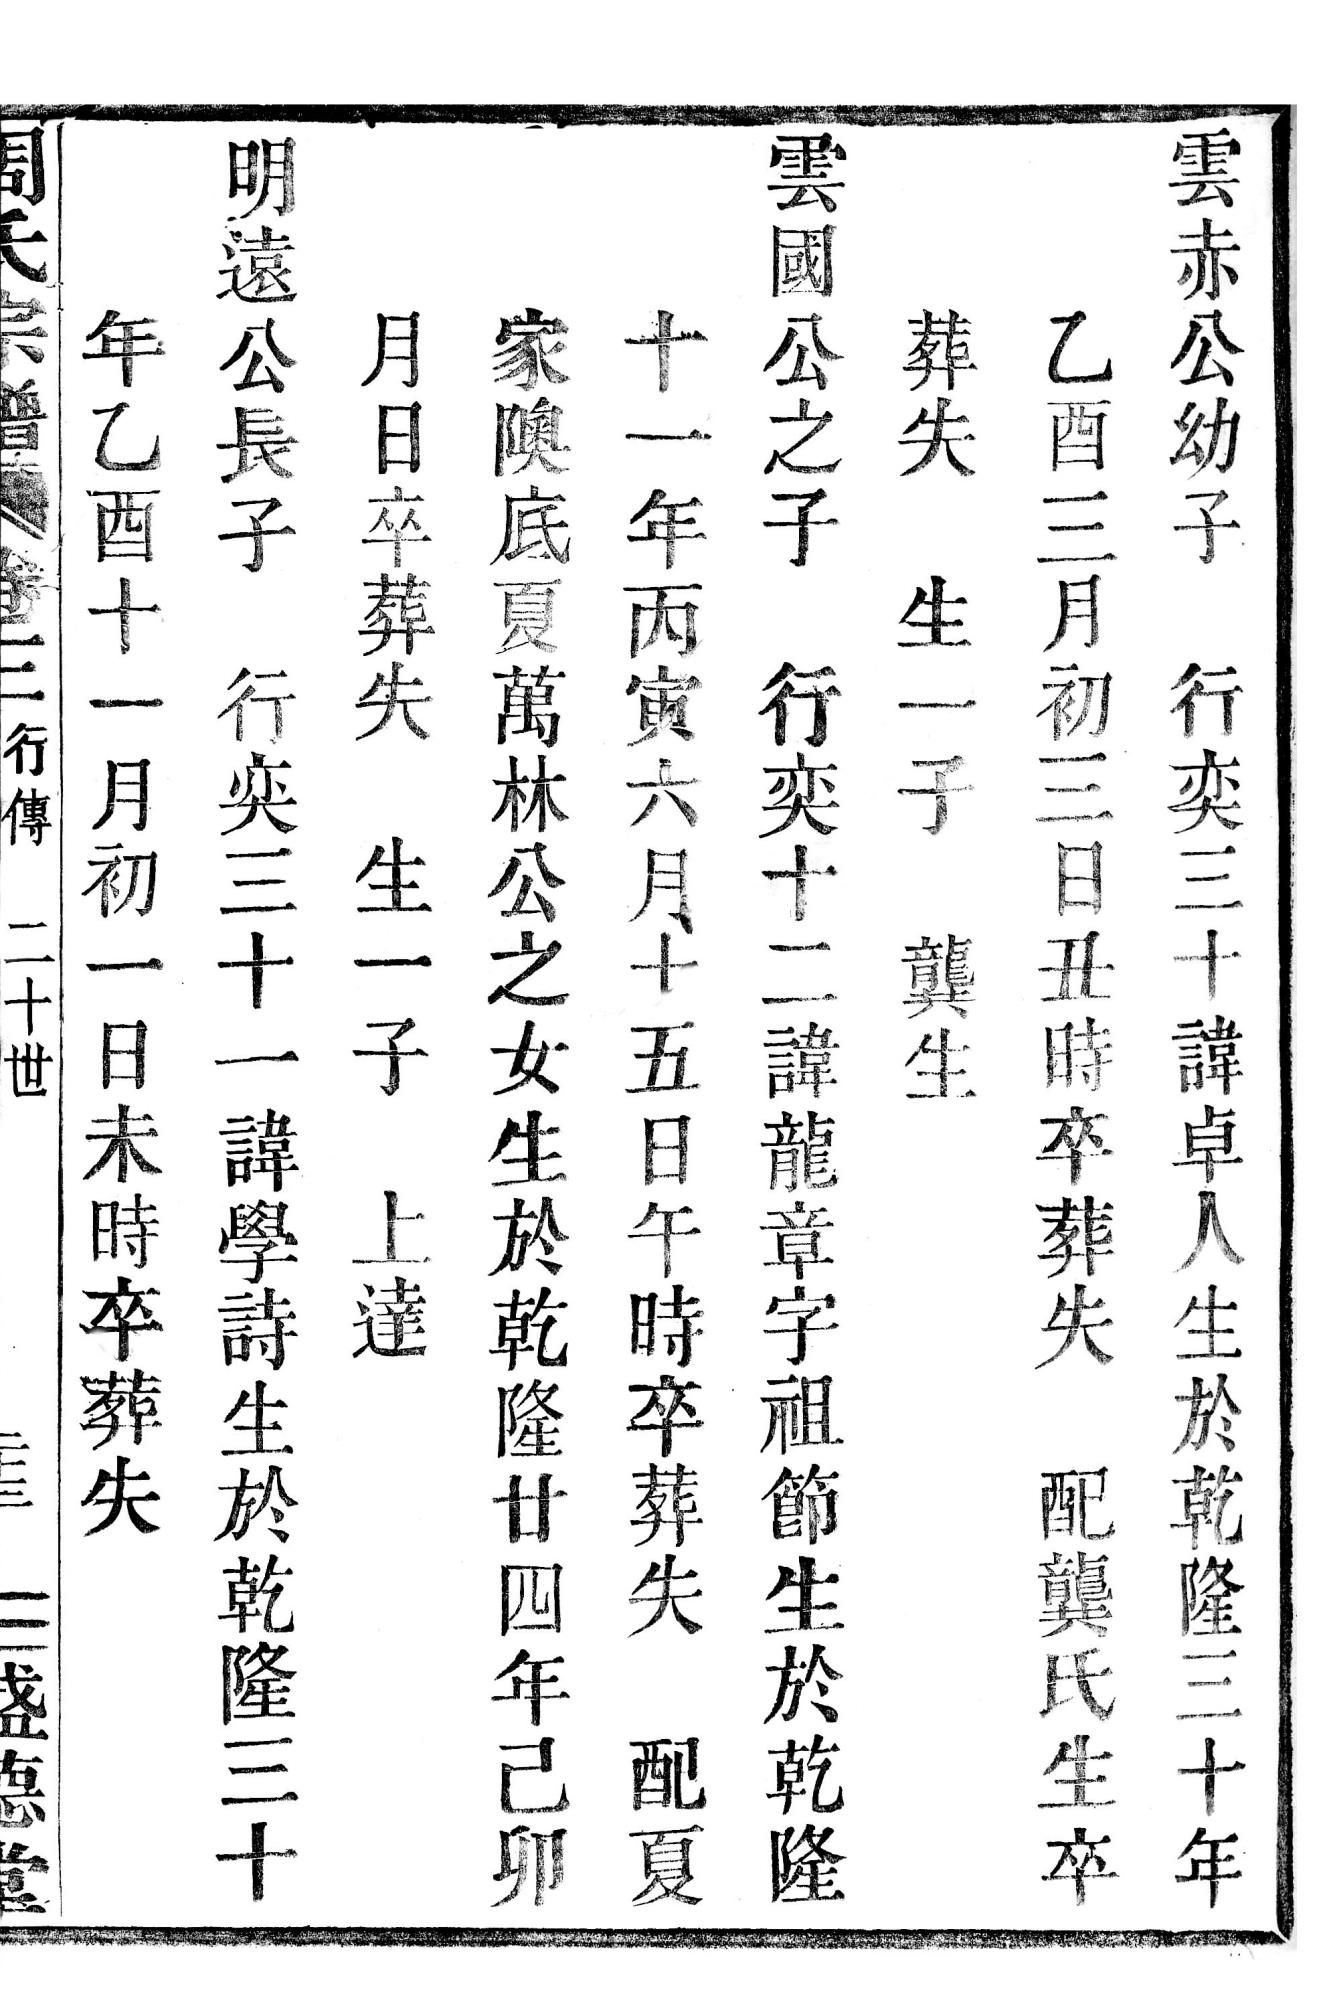 雲赤公幼子　行奕三十諱卓人生於乾隆三十年
乙酉三月初三日丑時卒葬失　配龔氏生卒
葬失　生一子　龔生
雲國公之子　行奕十二諱龍章字祖節生於乾隆
十一年丙寅六月十五日午時卒葬失　配夏
家隩底夏萬林公之女生於乾隆廿四年己卯
月日卒葬失　生一子　上達
明遠公長子　行奕三十一諱學詩生於乾隆三十
年乙酉十一月初一日未時卒葬失
周氏宗譜　卷三　行傳　二十世　盛德堂